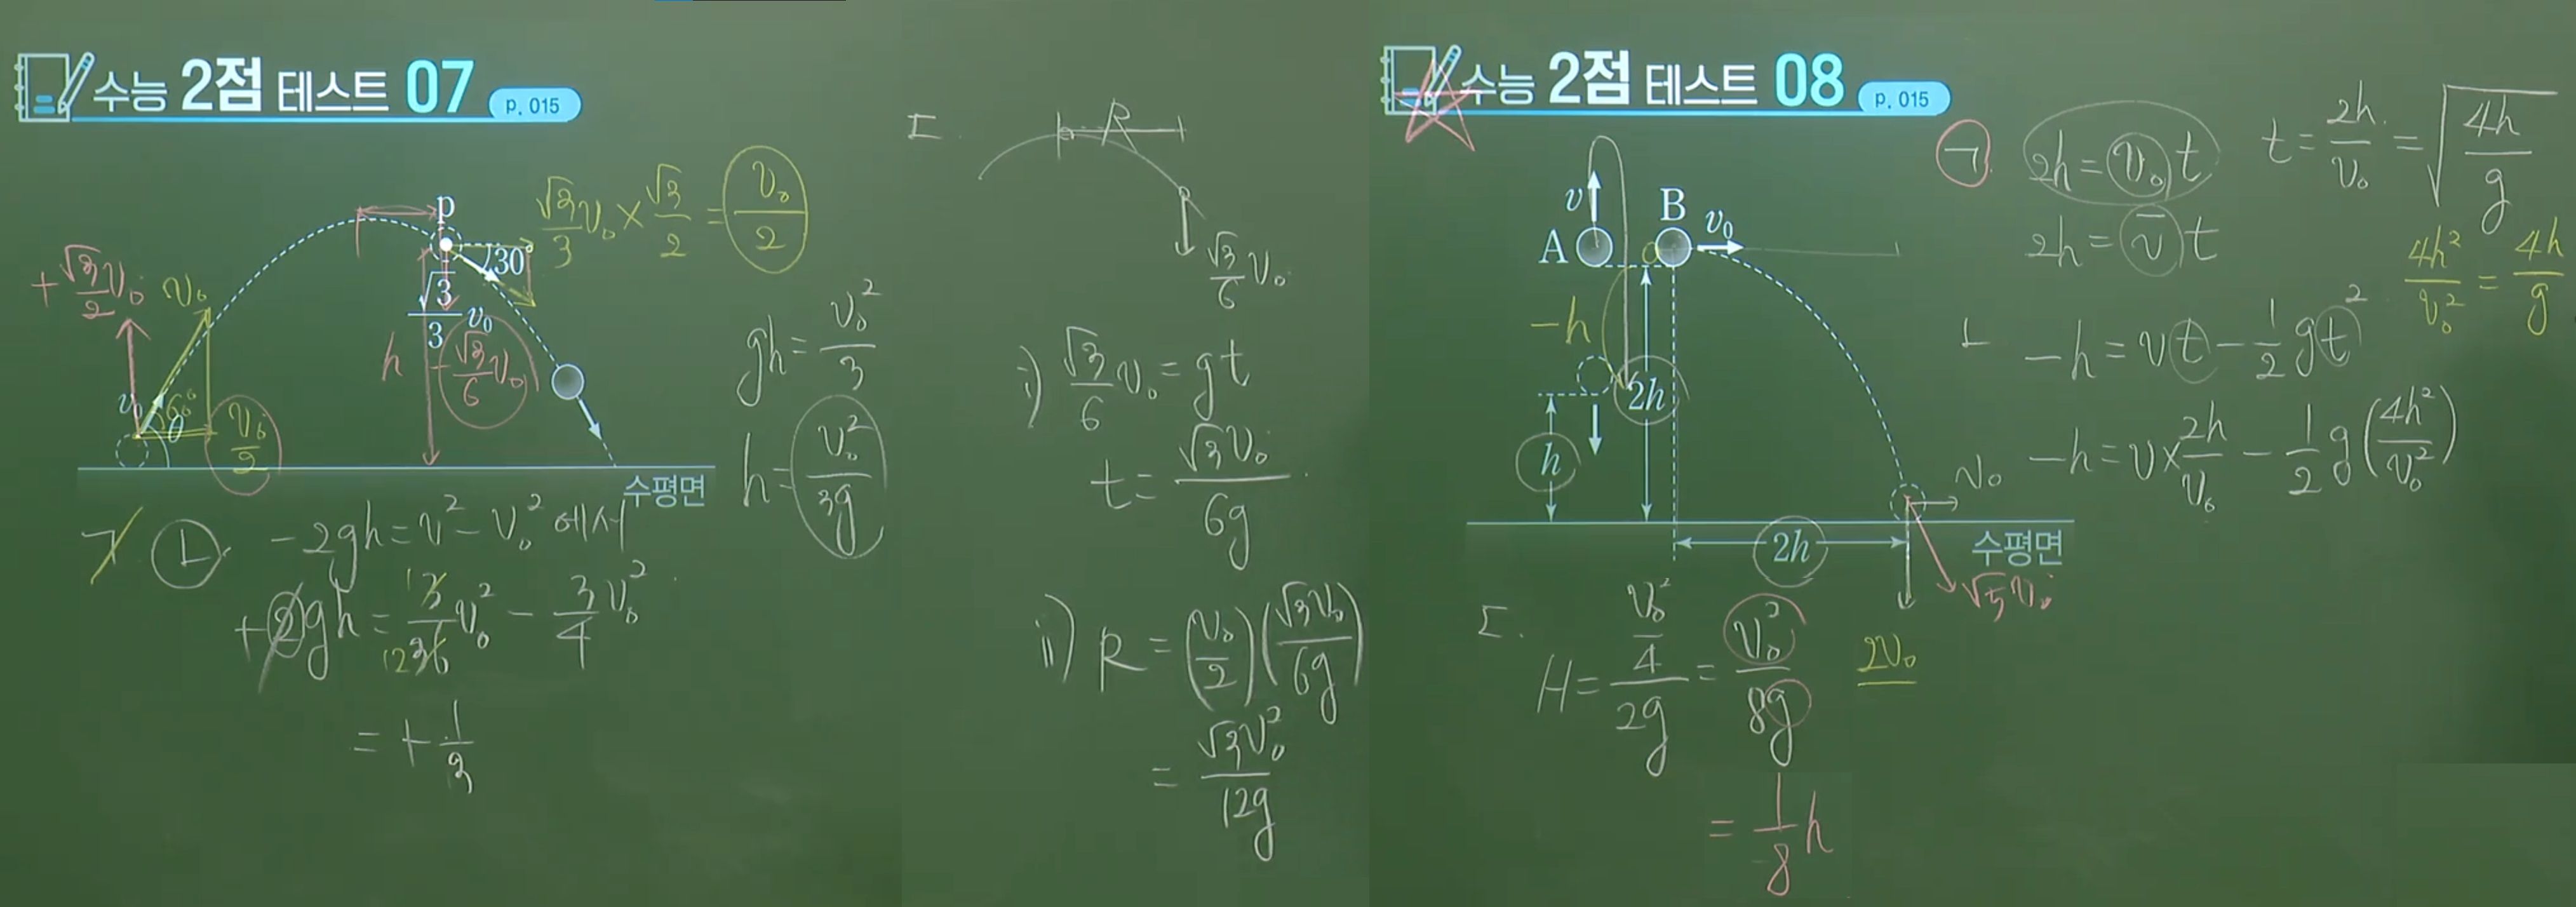 수능 2점 테스트 07 p. 015
p
30°
√3/3 v₀
√3/3 v₀ × √3/2 = v₀/2
+ √3/2 v₀
v₀
v₀
60°
θ
v₀/2
h
- √3/6 v₀
수평면
gh = v₀²/3
h = v₀²/3g
ㄱ ㄴ. -2gh = v² - v₀² 에서
+2gh = 3/36 v₀² - 3/4 v₀²
1
12
= + 1/3
ㄷ.
R
√3/6 v₀
i) √3/6 v₀ = gt
t = √3v₀/6g
ii) R = (v₀/2)(√3v₀/6g)
= √3v₀²/12g
수능 2점 테스트 08 p. 015
v
A
B
v₀
-h
2h
h
2h
수평면
v₀
√5v₀
ㄱ. 2h = v₀t
t = 2h/v₀ = √(4h/g)
2h = v̄t
4h²/v₀² = 4h/g
ㄴ -h = vt - 1/2 gt²
-h = v × 2h/v₀ - 1/2 g(4h²/v₀²)
ㄷ.
H = (v₀²/4)/2g = v₀²/8g
2v₀
= 1/8 h